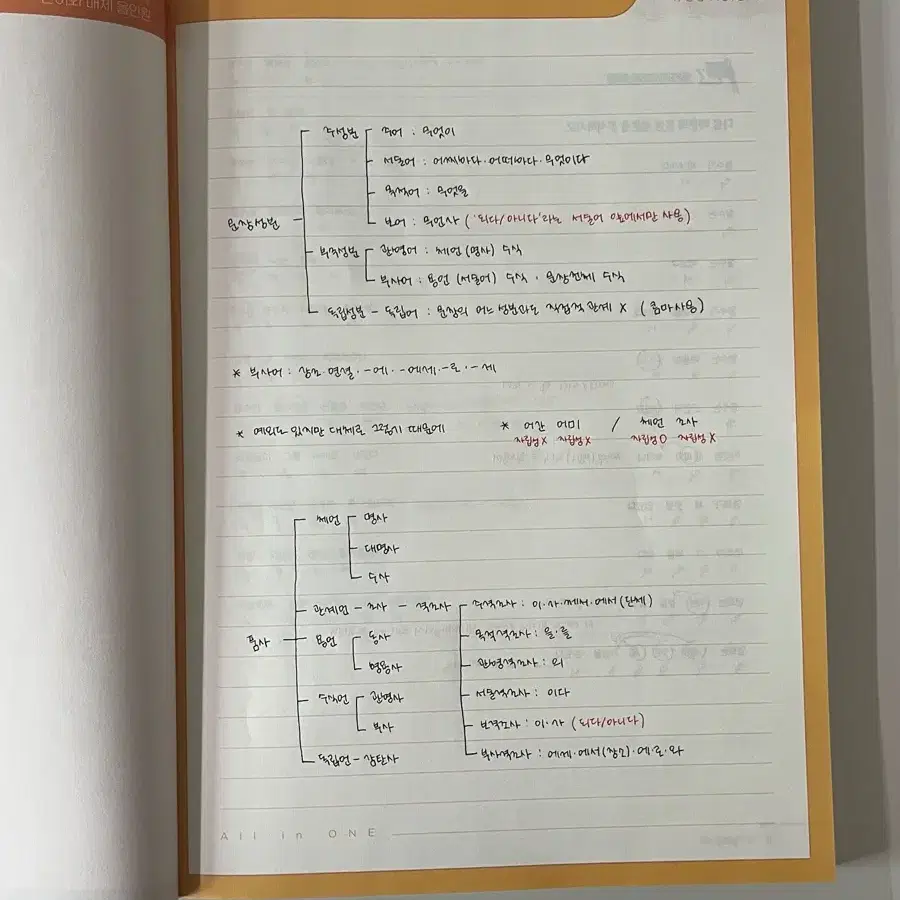 문장성분
주성분 주어 : 무엇이
서술어 : 어찌하다·어떠하다·무엇이다
목적어 : 무엇을
보어 : 무엇가 ('되다/아니다'라는 서술어 앞에서만 사용)
부속성분 관형어 : 체언 (명사) 수식
부사어 : 용언 (서술어) 수식 · 문장전체 수식
독립성분 - 독립어 : 문장의 어느 성분과도 직접적 관계 X (콤마사용)
* 부사어 : 장소·연결·-에·-에게·-로·-게
* 예외도 있지만 대체로 그렇기 때문에
* 어간 어미 / 체언 조사
자립성X 자립성X 자립성O 자립성X
품사
체언 명사
대명사
수사
관계언 - 조사 - 격조사 주격조사 : 이·가·께서·에서(단체)
용언 동사 목적격조사 : 을·를
형용사 관형격조사 : 의
수식언 관형사 서술격조사 : 이다
부사 보격조사 : 이·가 (되다/아니다)
독립언 - 감탄사 부사격조사 : 에게·에서(장소)·에·로·와
All in ONE